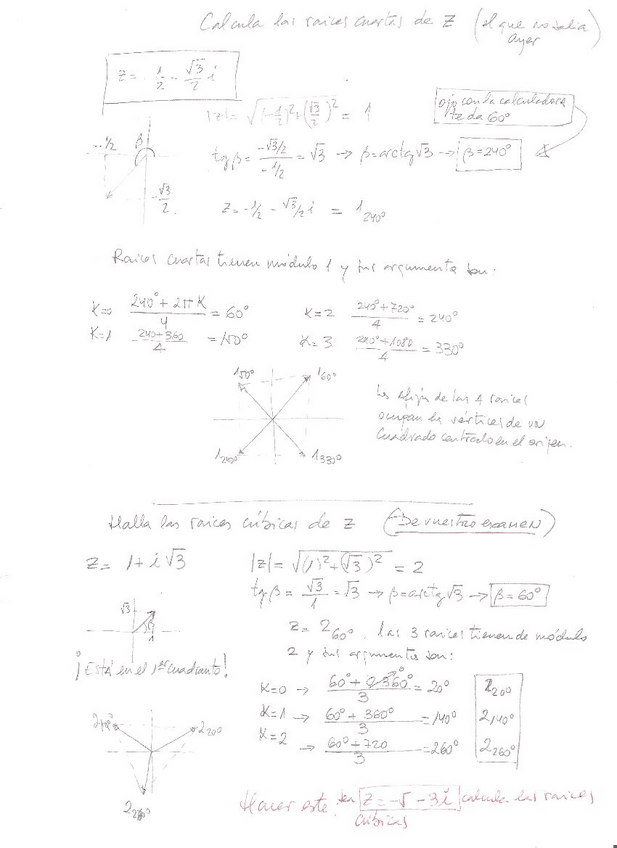 Calcula las raices cuartas de Z (el que no salia
ayer)
Z = -1/2 - √3/2 i
|Z| = √((-1/2)²+(√3/2)²) = 1
ojo con la calculadora
te da 60°
tg β = (-√3/2)/(-1/2) = √3 → β = arctg √3 → β = 240°
-1/2
β
-√3/2
Z = -1/2 - √3/2 i = 1 240°
Raices cuartas tienen módulo 1 y sus argumentos son:
K=0 (240° + 2πK)/4 = 60°
K=2 (240°+720°)/4 = 240°
K=1 (240+360)/4 = 150°
K=3 (240°+1080)/4 = 330°
1 150°
1 60°
1 240°
1 330°
Los afijos de las 4 raices
ocupan los vértices de un
cuadrado centrado en el origen.
Halla las raices cúbicas de Z (De vuestro examen)
Z = 1 + i√3
|Z| = √((1)²+(√3)²) = 2
tg β = √3/1 = √3 → β = arctg √3 → β = 60°
√3
1
Z = 2 60°. las 3 raices tienen de módulo
¡Está en el 1er cuadrante!
2 y sus argumentos son:
K=0 → (60° + 0·360°)/3 = 20° 2 20°
K=1 → (60° + 360°)/3 = 140° 2 140°
K=2 → (60° + 720)/3 = 260° 2 260°
2 20°
Hacer este: Z = -√ - 3i calcula las raices
cúbicas